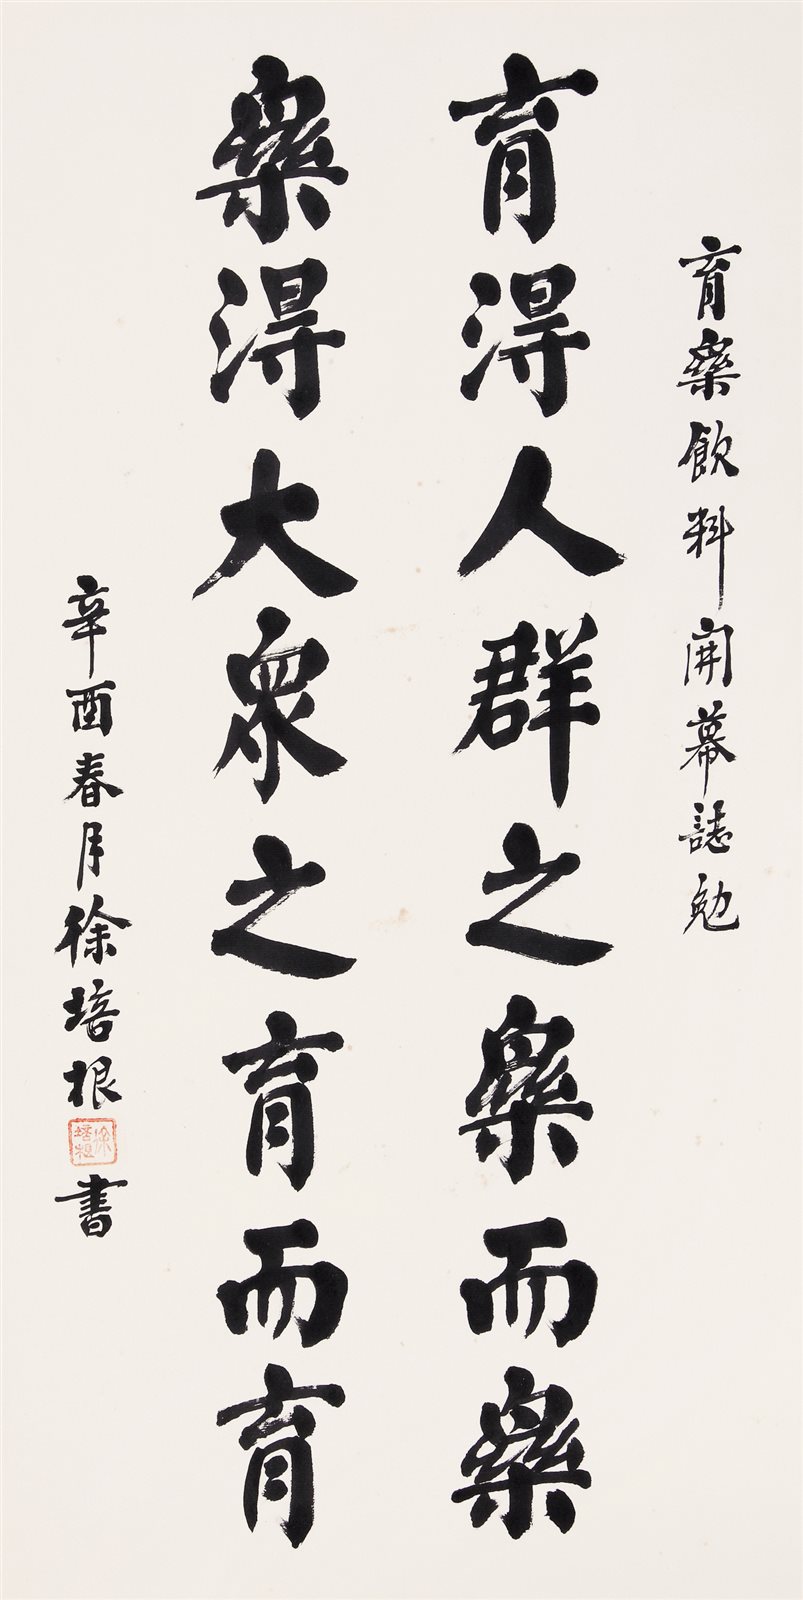 育樂飲料開幕誌勉
育得人群之樂而樂
樂得大眾之育而育
辛酉春月徐培根書
徐培根